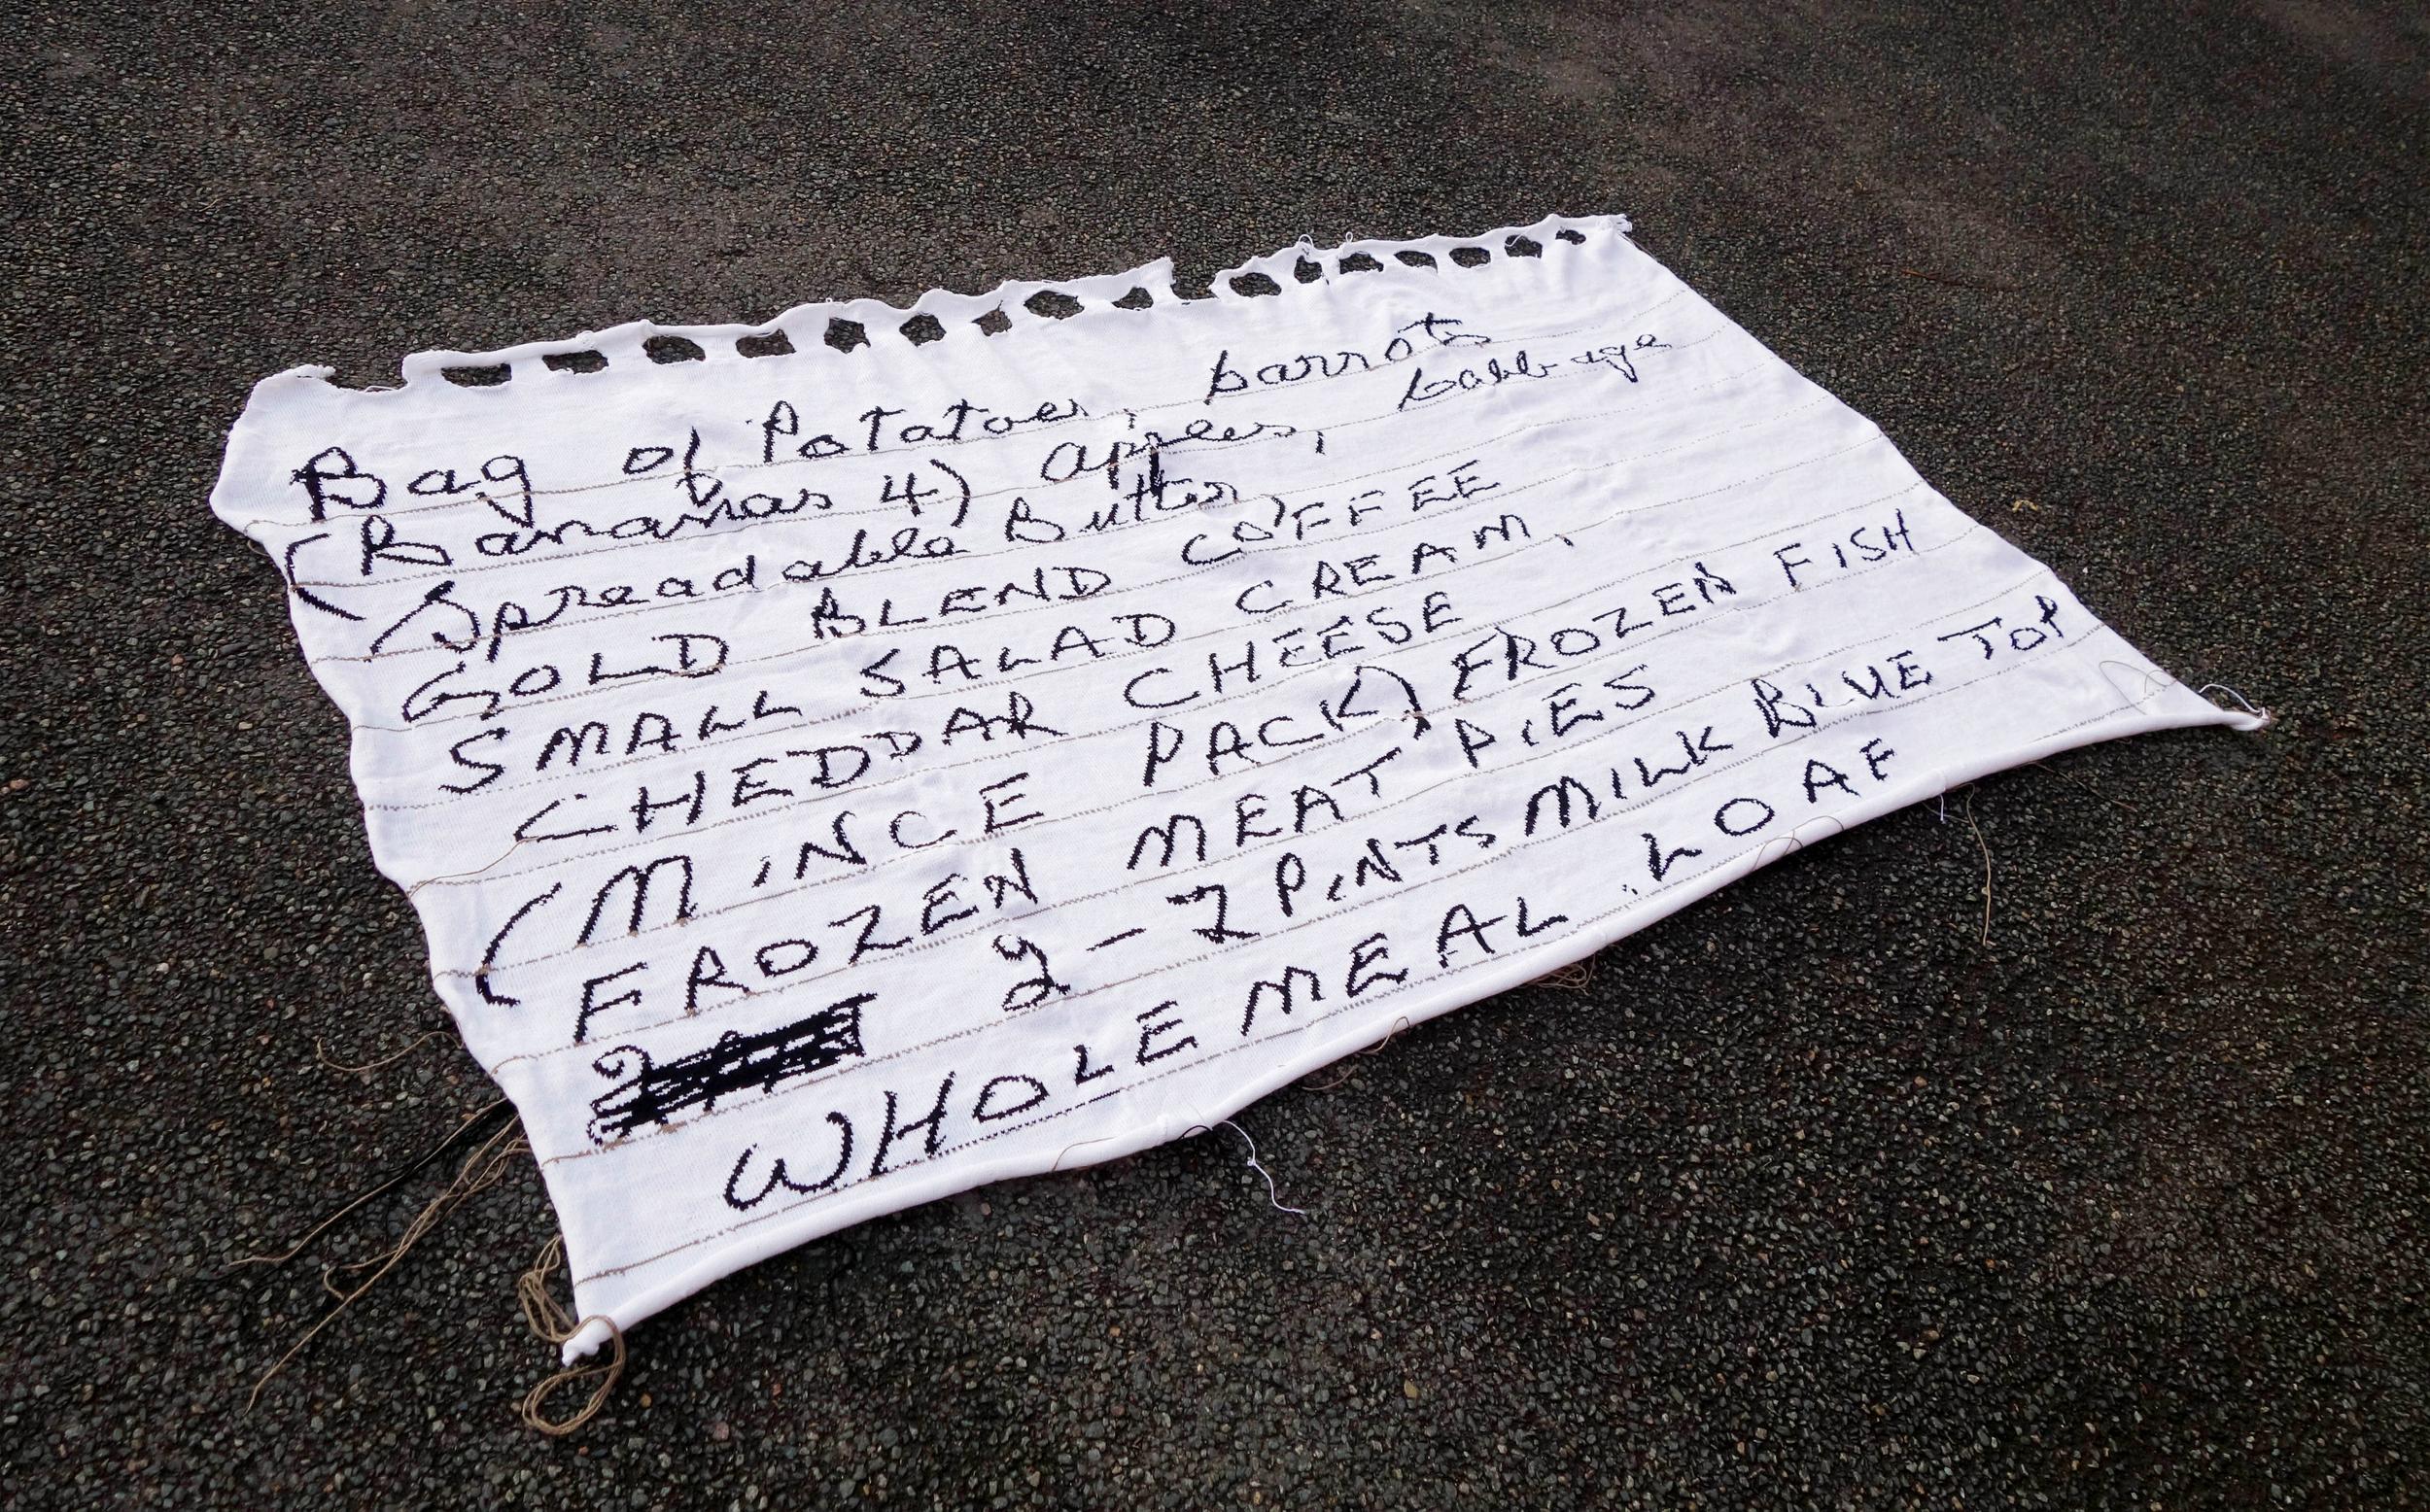 Bag of Potatoes, Carrots
(Bananas 4) apples, Cabbage
Spreadable Butter,
GOLD BLEND COFFEE
SMALL SALAD CREAM.
CHEDDAR CHEESE
(MINCE PACK) FROZEN FISH
FROZEN MEAT PIES
2 2-2 PINTS MILK BLUE TOP
WHOLEMEAL LOAF